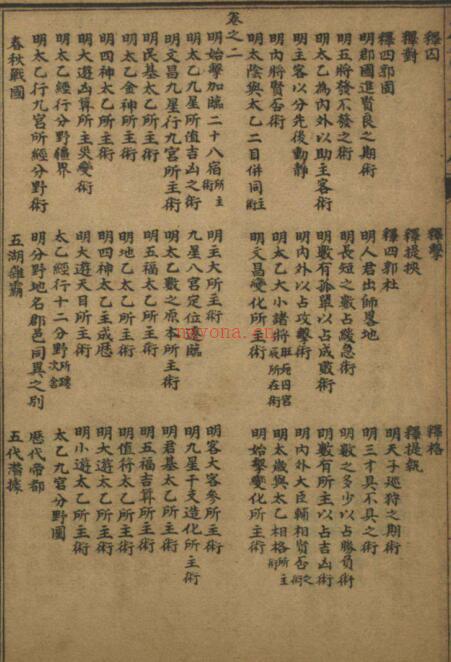 釋囚　釋擊　釋格
釋對　釋提挾　釋提執
釋四郭固　釋四郭杜　明天子巡狩之期術
明郡國進賢良之期術　明人君出師畧地　明三才具不具之術
明五將發不發之術　明長短之數占緩急術　明數之多少以占勝負術
明太乙為内外以助主客術　明數有孤單以占成敗術　明數有所主以占吉凶術
明主客以分先後動静　明内外以占攻擊術　明内外大臣輔相賢否之術
明内將賢否術　明太乙大小諸將囚宮辰所在術　明太歲與太乙相格所主術
明太陰與太乙二目併同所主術　明文昌變化所主術　明始擊變化所主術
卷之二
明始擊加臨二十八宿所主術　明主大所主術　明客大客参所主術
明太乙九星所值吉凶之術　九星八宮定位迭臨　明九星干支造化所主術
明文昌九星行九宮所主術　明太乙數之原本所主術　明君基太乙所主術
明民基太乙所主術　明五福太乙所主術　明五福吉算所主術
明太乙金神所主術　明地乙太乙所主術　明值符太乙所主術
明四神太乙所主術　明四神太乙主成厯　明大遊太乙所主術
明大遊凶算所主災變術　明大遊天目所主術　明小遊太乙所主術
明太乙經行分野疆界　太乙經行十二分野所躔次舍　太乙九宮分野圖
明太乙行九宮所經分野術　明分野地名郡邑同異之别　厯代帝都
春秋戰國　五湖雜霸　五代潛據
nayona.cn